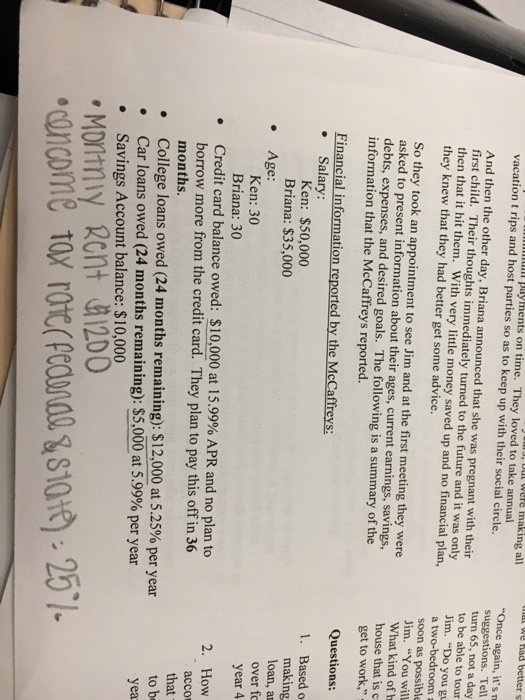 payments on time.
were making all
vacation t rips and host parties so as to keep up with their social circle.
And then the other day, Briana announced that she was pregnant with their
first child. Their thoughts immediately turned to the future and it was only
then that it hit them. With very little money saved up and no financial plan,
they knew that they had better get some advice.
So they took an appointment to see Jim and at the first meeting they were
asked to present information about their ages, current earnings, savings,
debts, expenses, and desired goals. The following is a summary of the
information that the McCaffreys reported.
Financial information reported by the McCaffreys:
• Salary:
Ken: $50,000
Briana: $35,000
• Age:
Ken: 30
Briana: 30
• Credit card balance owed: $10,000 at 15.99% APR and no plan to
borrow more from the credit card. They plan to pay this off in 36
months.
• College loans owed (24 months remaining): $12,000 at 5.25% per year
• Car loans owed (24 months remaining): $5,000 at 5.99% per year
• Savings Account balance: $10,000
• Monthly Rent $1200
• income tax rate (federal & state): 25%
we had better s
"Once again, it's n
suggestions. Tell
turn 65, not a day
to be able to pur
Jim. "Do you gu
a two-bedroom a
soon as possible
Jim. "You will
What kind of h
house that is c
get to work."
Questions:
1. Based o
making
loan, an
over fo
year 4
2. How
accon
that i
to b
yea